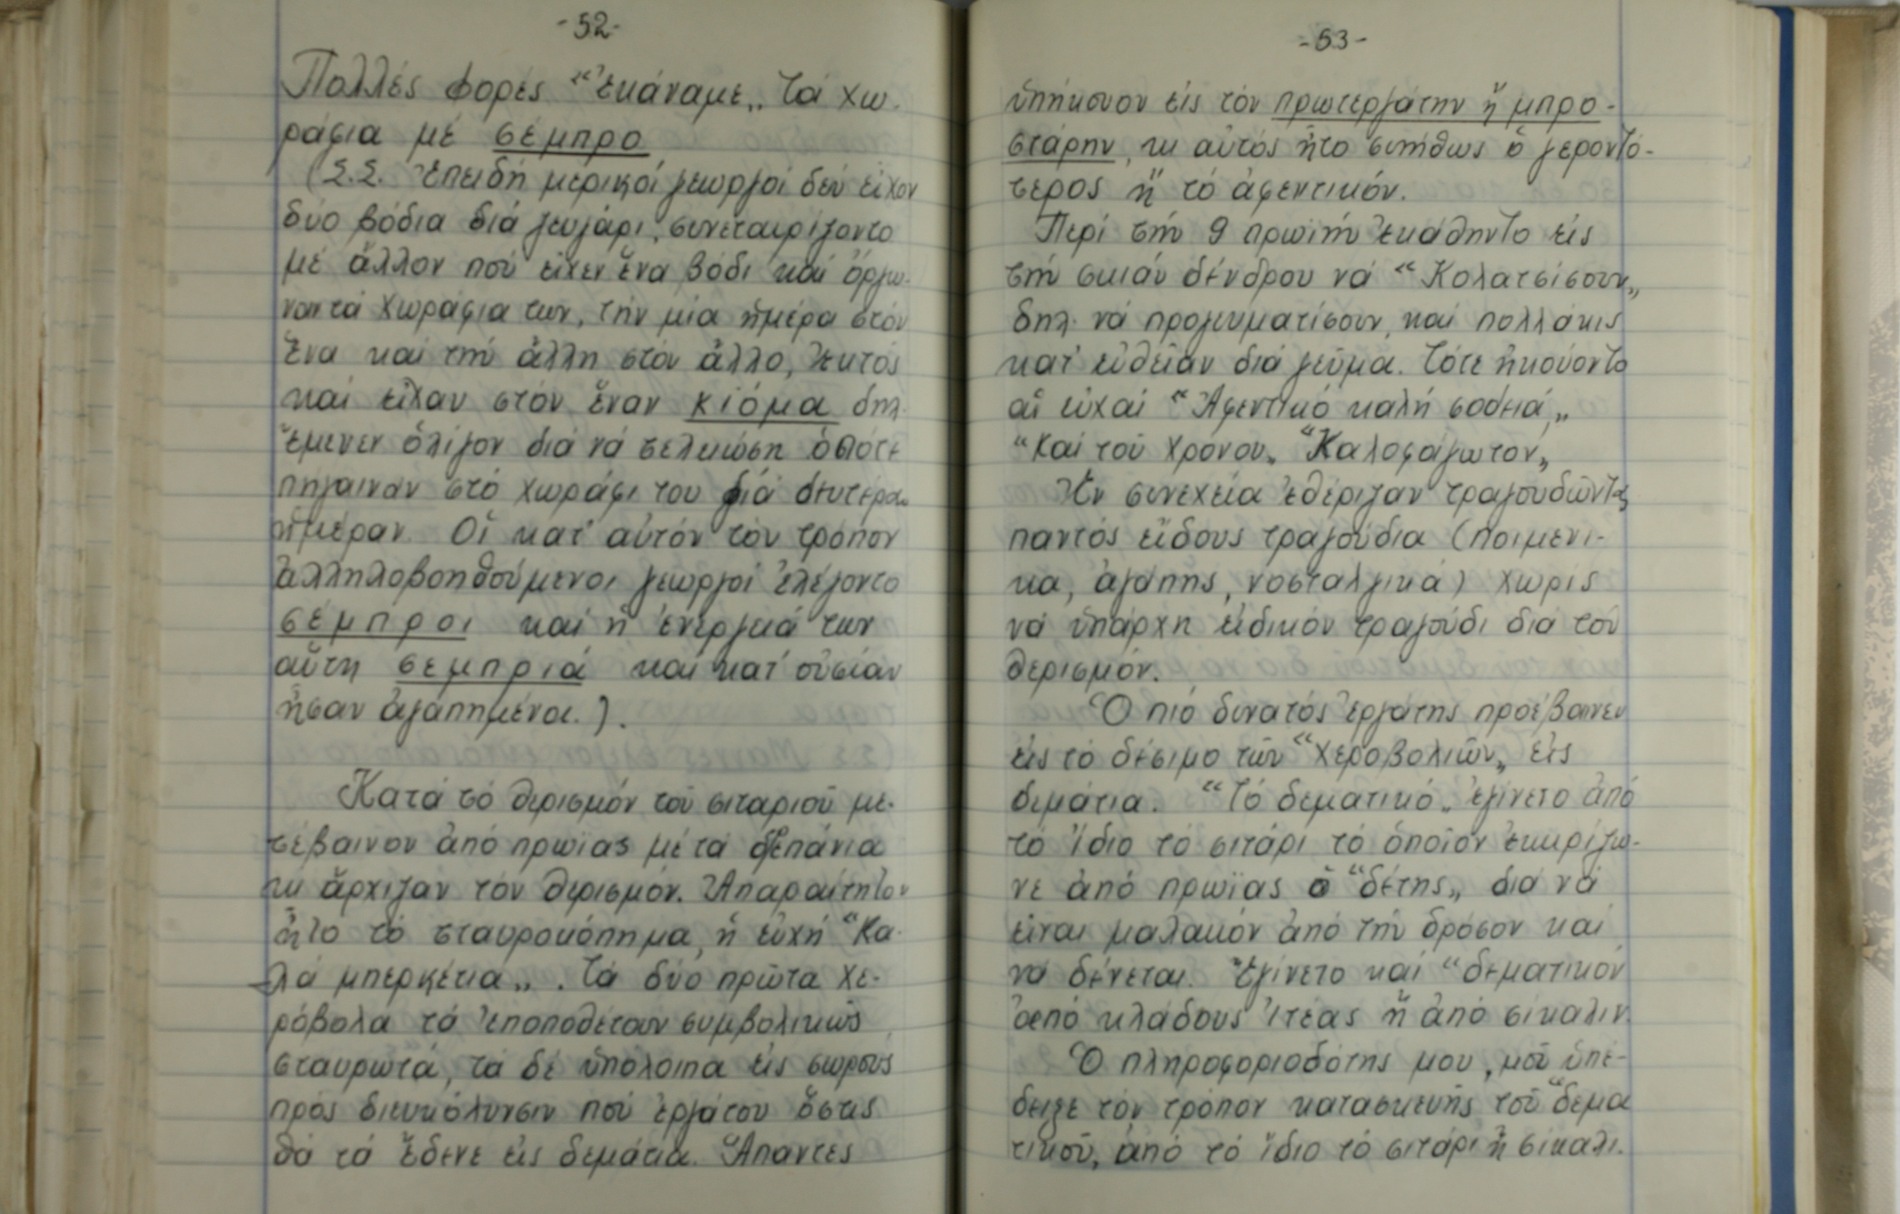 -52-
Πολλές φορές "ἐκάναμε„ τά χω-
ράφια μέ σέμπρο
(Σ.Σ. Ἐπειδή μερικοί γεωργοί δέν εἶχον
δύο βόδια διά ζευγάρι, συνεταιρίζοντο
μέ ἄλλον πού εἶχεν ἕνα βόδι καί ὄργω-
ναν τά χωράφια των, τήν μία ἡμέρα στόν
ἕνα καί τήν ἄλλη στόν ἄλλο, ἐκτός
καί εἶχαν στόν ἕναν κιόμα δηλ.
ἔμενεν ὀλίγον διά νά τελειώση ὁπότε
πήγαιναν στό χωράφι του διά δευτέραν
ἡμέραν. Οἵ κατ' αὐτόν τόν τρόπον
ἀλληλοβοηθούμενοι γεωργοί ἐλέγοντο
σέμπροι καί ἡ ἐνέργειά των
αὕτη σεμπριά καί κατ' οὐσίαν
ἦσαν ἀγαπημένοι.).
Κατά τό θερισμόν τοῦ σιταριοῦ με-
τέβαινον ἀπό πρωΐας μέ τά δρεπάνια
κι ἄρχιζαν τόν θερισμόν. Ἀπαραίτητον
ἦτο τό σταυροκόπημα, ἡ εὐχή "Κα-
λά μπερκέτια„. Τά δύο πρῶτα χε-
ρόβολα τά ἐποποθέταυν συμβολικῶς
σταυρωτά, τά δέ ὑπόλοιπα εἰς σωρούς
πρός διευκόλυνσιν τοῦ ἐργάτου ὅστις
θά τά ἔδενε εἰς δεμάτια. Ἅπαντες
-53-
ὑπήκουον εἰς τόν πρωτεργάτην ἤ μπρο-
στάρην, κι αὐτός ἦτο συνήθως ὁ γεροντό-
τερος ἤ τό ἀφεντικόν.
Περί τήν 9 πρωϊνήν ἐκάθηντο εἰς
τήν σκιάν δένδρου νά "Κολατσίσουν„
δηλ. νά προγευματίσουν, καί πολλάκις
κατ' εὐθεῖαν διά γεῦμα. Τότε ἠκούοντο
αἱ εὐχαί "Ἀφεντικό καλή σοδειά„
"Καί τοῦ χρόνου„ "Καλοφάγωτον„
Ἐν συνεχεία ἐθέριζαν τραγουδῶντας
παντός εἴδους τραγούδια (ποιμενι-
κα, ἀγάπης, νοσταλγικά) χωρίς
νά ὑπάρχη εἰδικόν τραγούδι διά τόν
θερισμόν.
Ὁ πιό δυνατός ἐργάτης προέβαινεν
εἰς τό δέσιμο τῶν "χεροβολιῶν„ εἰς
δεμάτια. "Τό δεματικό„ ἐγίνετο ἀπό
τό ἴδιο τό σιτάρι τό ὁποῖον ἐκκρίζω-
νε ἀπό πρωΐας ὁ "δέτης„ διά νά
εἶναι μαλακόν ἀπό τήν δρόσον καί
νά δένεται. Ἐγίνετο καί "δεματικόν
ἀπό κλάδους ἰτέας ἤ ἀπό σίκαλιν.
Ὁ πληροφοριοδότης μου, μοῦ ὑπέ-
δειξε τόν τρόπον κατασκευῆς τοῦ "δεμα
τικοῦ, ἀπό τό ἴδιο τό σιτάρι ἤ σίκαλι.